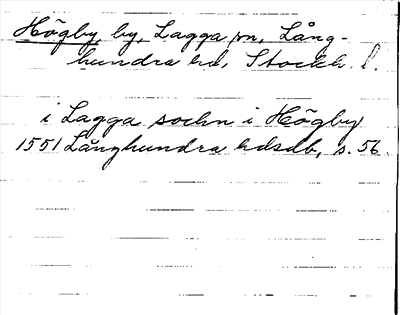 Högby by, Lagga sn, Lång-
hundra hd, Stockh. l.
i Lagga sochn i Högby
1551 Långhundra hdsdb, s. 56.